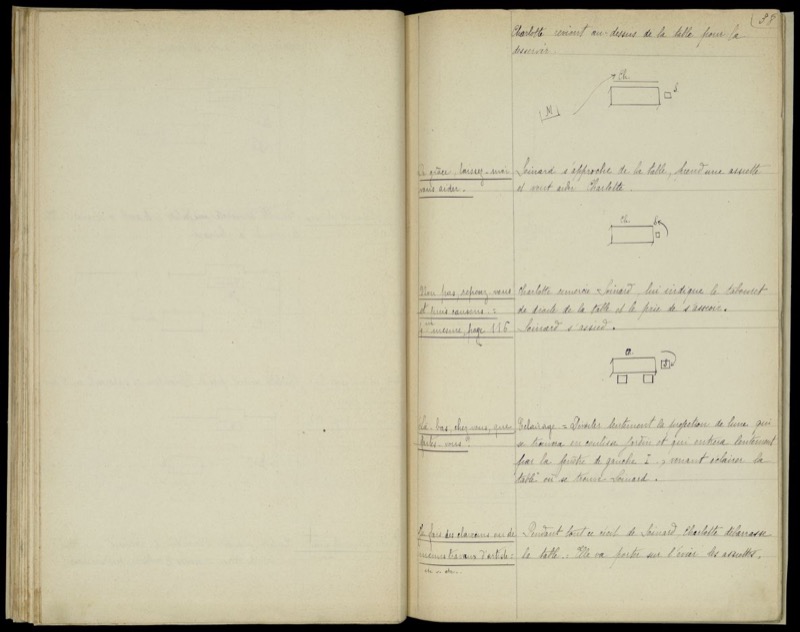 38
Charlotte revient au-dessus de la table pour la
desservir.
Ch.
S
M
De grâce, laissez-moi
vous aider.
Loinard s'approche de la table, prend une assiette
et veut aider Charlotte.
Ch.
Non pas, reposez-vous
et puis causons. =
mesure, page 116
Charlotte remercie Loinard, lui indique le tabouret
de droite de la table et le prie de s'asseoir.
Loinard s'assied.
Là-bas, chez vous, que
faites-vous ?
Eclairage = Dévoiler lentement la projection de lune qui
se trouvera en coulisse jardin et qui entrera lentement
par la fenêtre de gauche I, venant éclairer la
table où se trouve Loinard.
Je fais des clavecins ou de
menus travaux d'artiste =
Pendant tout ce récit de Loinard, Charlotte débarrasse
la table. Elle va porter sur l'évier les assiettes.